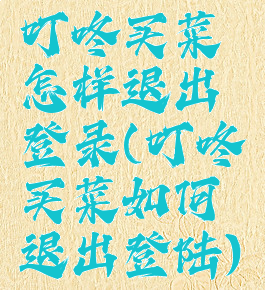 叮咚买菜
怎样退出
登录(叮咚
买菜如何
退出登陆)